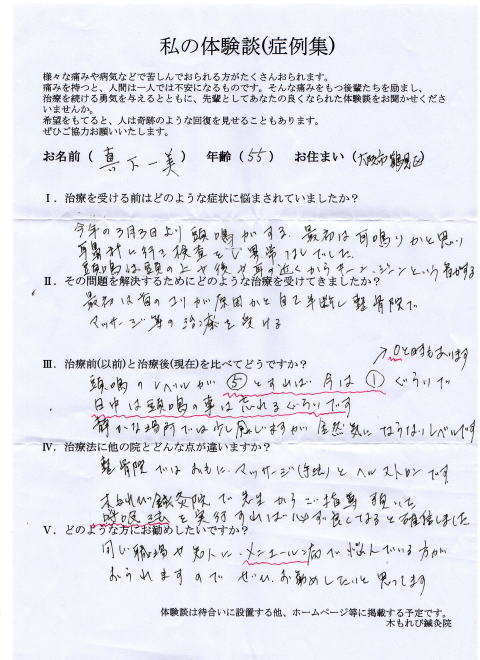 私の体験談(症例集)
様々な痛みや病気などで苦しんでおられる方がたくさんおられます。
痛みを持つと、人間は一人では不安になるものです。そんな痛みをもつ後輩たちを励まし、
治療を続ける勇気を与えるとともに、先輩としてあなたの良くなられた体験談をお聞かせくださ
いませんか。
希望をもてると、人は奇跡のような回復を見せることもあります。
ぜひご協力お願いいたします。
お名前（ 真下一美 ） 年齢（ 55 ） お住まい（大阪市鶴見区）
Ⅰ．治療を受ける前はどのような症状に悩まされていましたか？
今年の3月3日より頭鳴がする。最初は耳鳴りかと思い
耳鼻科に行き検査をし異常なしでした。
頭鳴は頭の上や後や耳の近くからキーン、ジーンという音がする
Ⅱ．その問題を解決するためにどのような治療を受けてきましたか？
最初は首のコリが原因かと自己判断し整骨院で
マッサージ等の治療を受ける
Ⅲ．治療前(以前)と治療後(現在)を比べてどうですか？
↗0と時もあります
頭鳴のレベルが⑤とすれば今は①ぐらいで
日中は頭鳴の事は忘れるぐらいです
静かな場所では少し感じますが全然気にならないレベルです
Ⅳ．治療法に他の院とどんな点が違いますか？
整骨院ではおもに、マッサージ(手技)とヘルストロンです
木もれび鍼灸院で先生からご指導頂いた
呼吸法を実行すれば必ず良くなると確信しました
Ⅴ．どのような方にお勧めしたいですか？
同じ職場や知人に、メニエール病で悩んでいる方が
おられますので ぜひ、お勧めしたいと思ってます
体験談は待合いに設置する他、ホームページ等に掲載する予定です。
木もれび鍼灸院